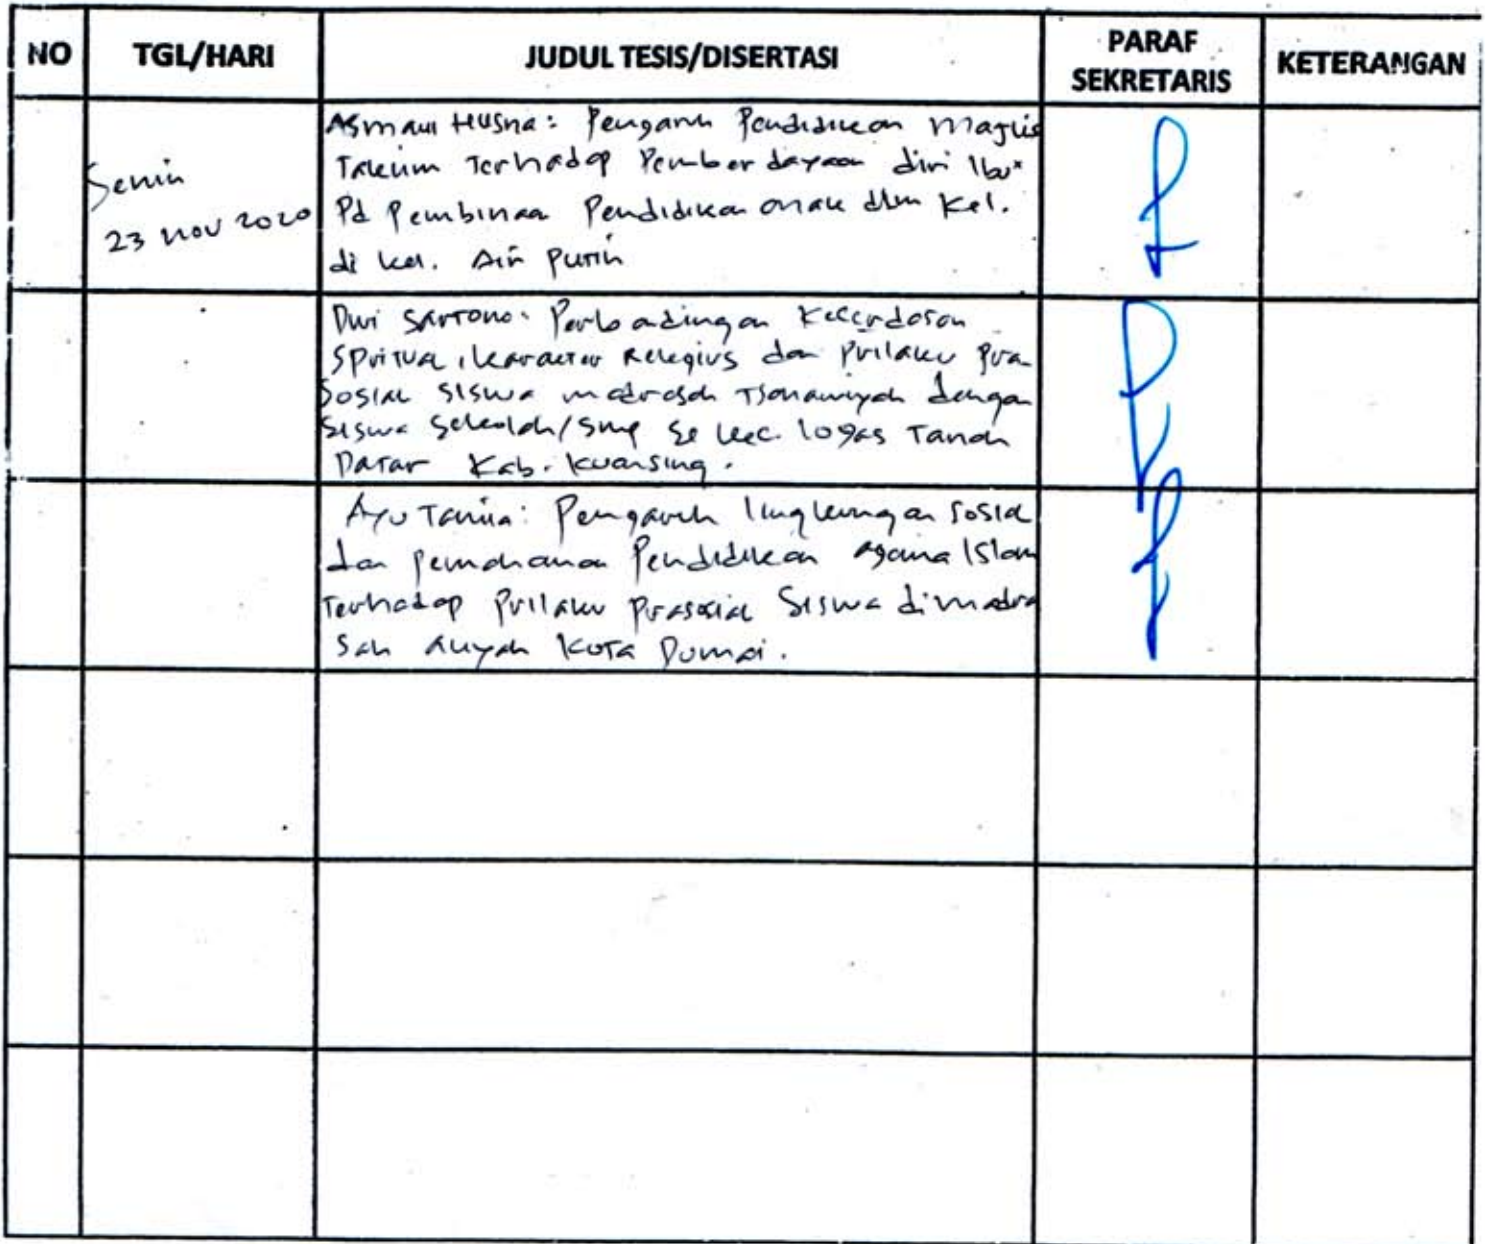 NO TGL/HARI JUDUL TESIS/DISERTASI PARAF SEKRETARIS KETERANGAN
Senin
23 Nov 2020
Asmaul Husna: Pengaruh Pendidikan Majlis
Taklim Terhadap Pemberdayaan diri Ibu"
Pd Pembinaan Pendidikan anak dlm Kel.
di kel. Air Putih
Dwi Sartono: Perbandingan Kecerdasan
Spritual, karakter Relegius dan Prilaku Pra
Sosial Siswa madrasah Tsanawiyah dengan
Siswa Sekolah/Smp Se kec. Logas Tanah
Darar Kab. Kuansing.
Ayu Tania: Pengaruh lingkungan Sosial
dan Pemahaman Pendidikan agama Islam
Terhadap Prilaku Prasosial Siswa di madra
sah aliyah Kota Dumai.